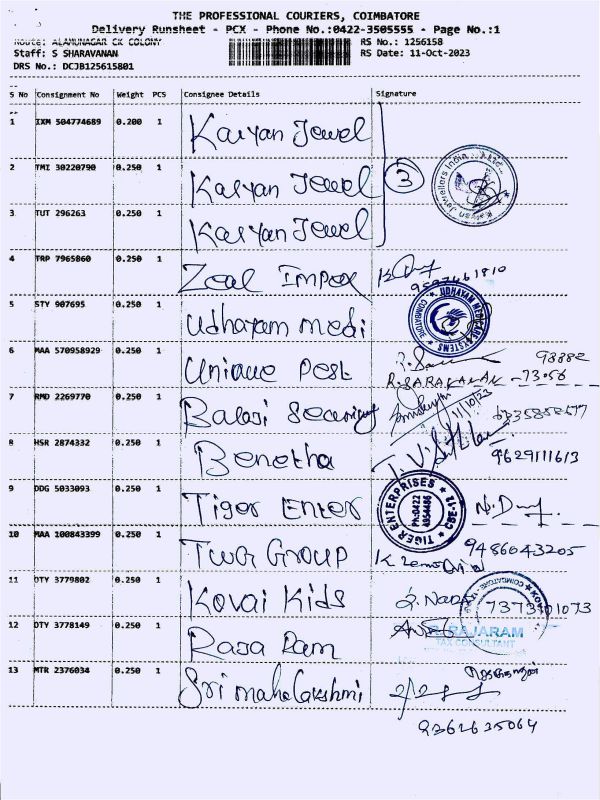 THE PROFESSIONAL COURIERS, COIMBATORE
Delivery Runsheet - PCX - Phone No.:0422-3505555 - Page No.:1
Route: ALAMUNAGAR CK COLONY RS No.: 1256158
Staff: S SHARAVANAN RS Date: 11-Oct-2023
DRS No.: DCJB125615801
S No Consignment No Weight PCS Consignee Details Signature
1 IXM 504774689 0.200 1 Kalyan Jewel
2 TMI 30220790 0.250 1 Kalyan Jewel 3 Kalyan Jewellers India Ltd.
3 TUT 296263 0.250 1 Kalyan Jewel
4 TRP 7965860 0.250 1 Zeal Impex
5 STY 907695 0.250 1 Udhayam medi UDHAYAM MEDICAL SYSTEMS COIMBATORE
6 MAA 570958929 0.250 1 Unique Pest 98882
R.SARAVANAN -73056
7 RMD 2269770 0.250 1 Balaji Security 11/10/23
8 HSR 2874332 0.250 1 Benetha 9629111613
9 DDG 5033093 0.250 1 Tiger Enter TIGER ENTERPRISES Ph:0422 4954486 CBE-12
10 MAA 100843399 0.250 1 TWG Group 9486043205
11 DTY 3779802 0.250 1 Kovai Kids 7373101073
12 DTY 3778149 0.250 1 Raja Ram RAJARAM
TAX CONSULTANT
13 MTR 2376034 0.250 1 Sri mahalakshmi
9362635064